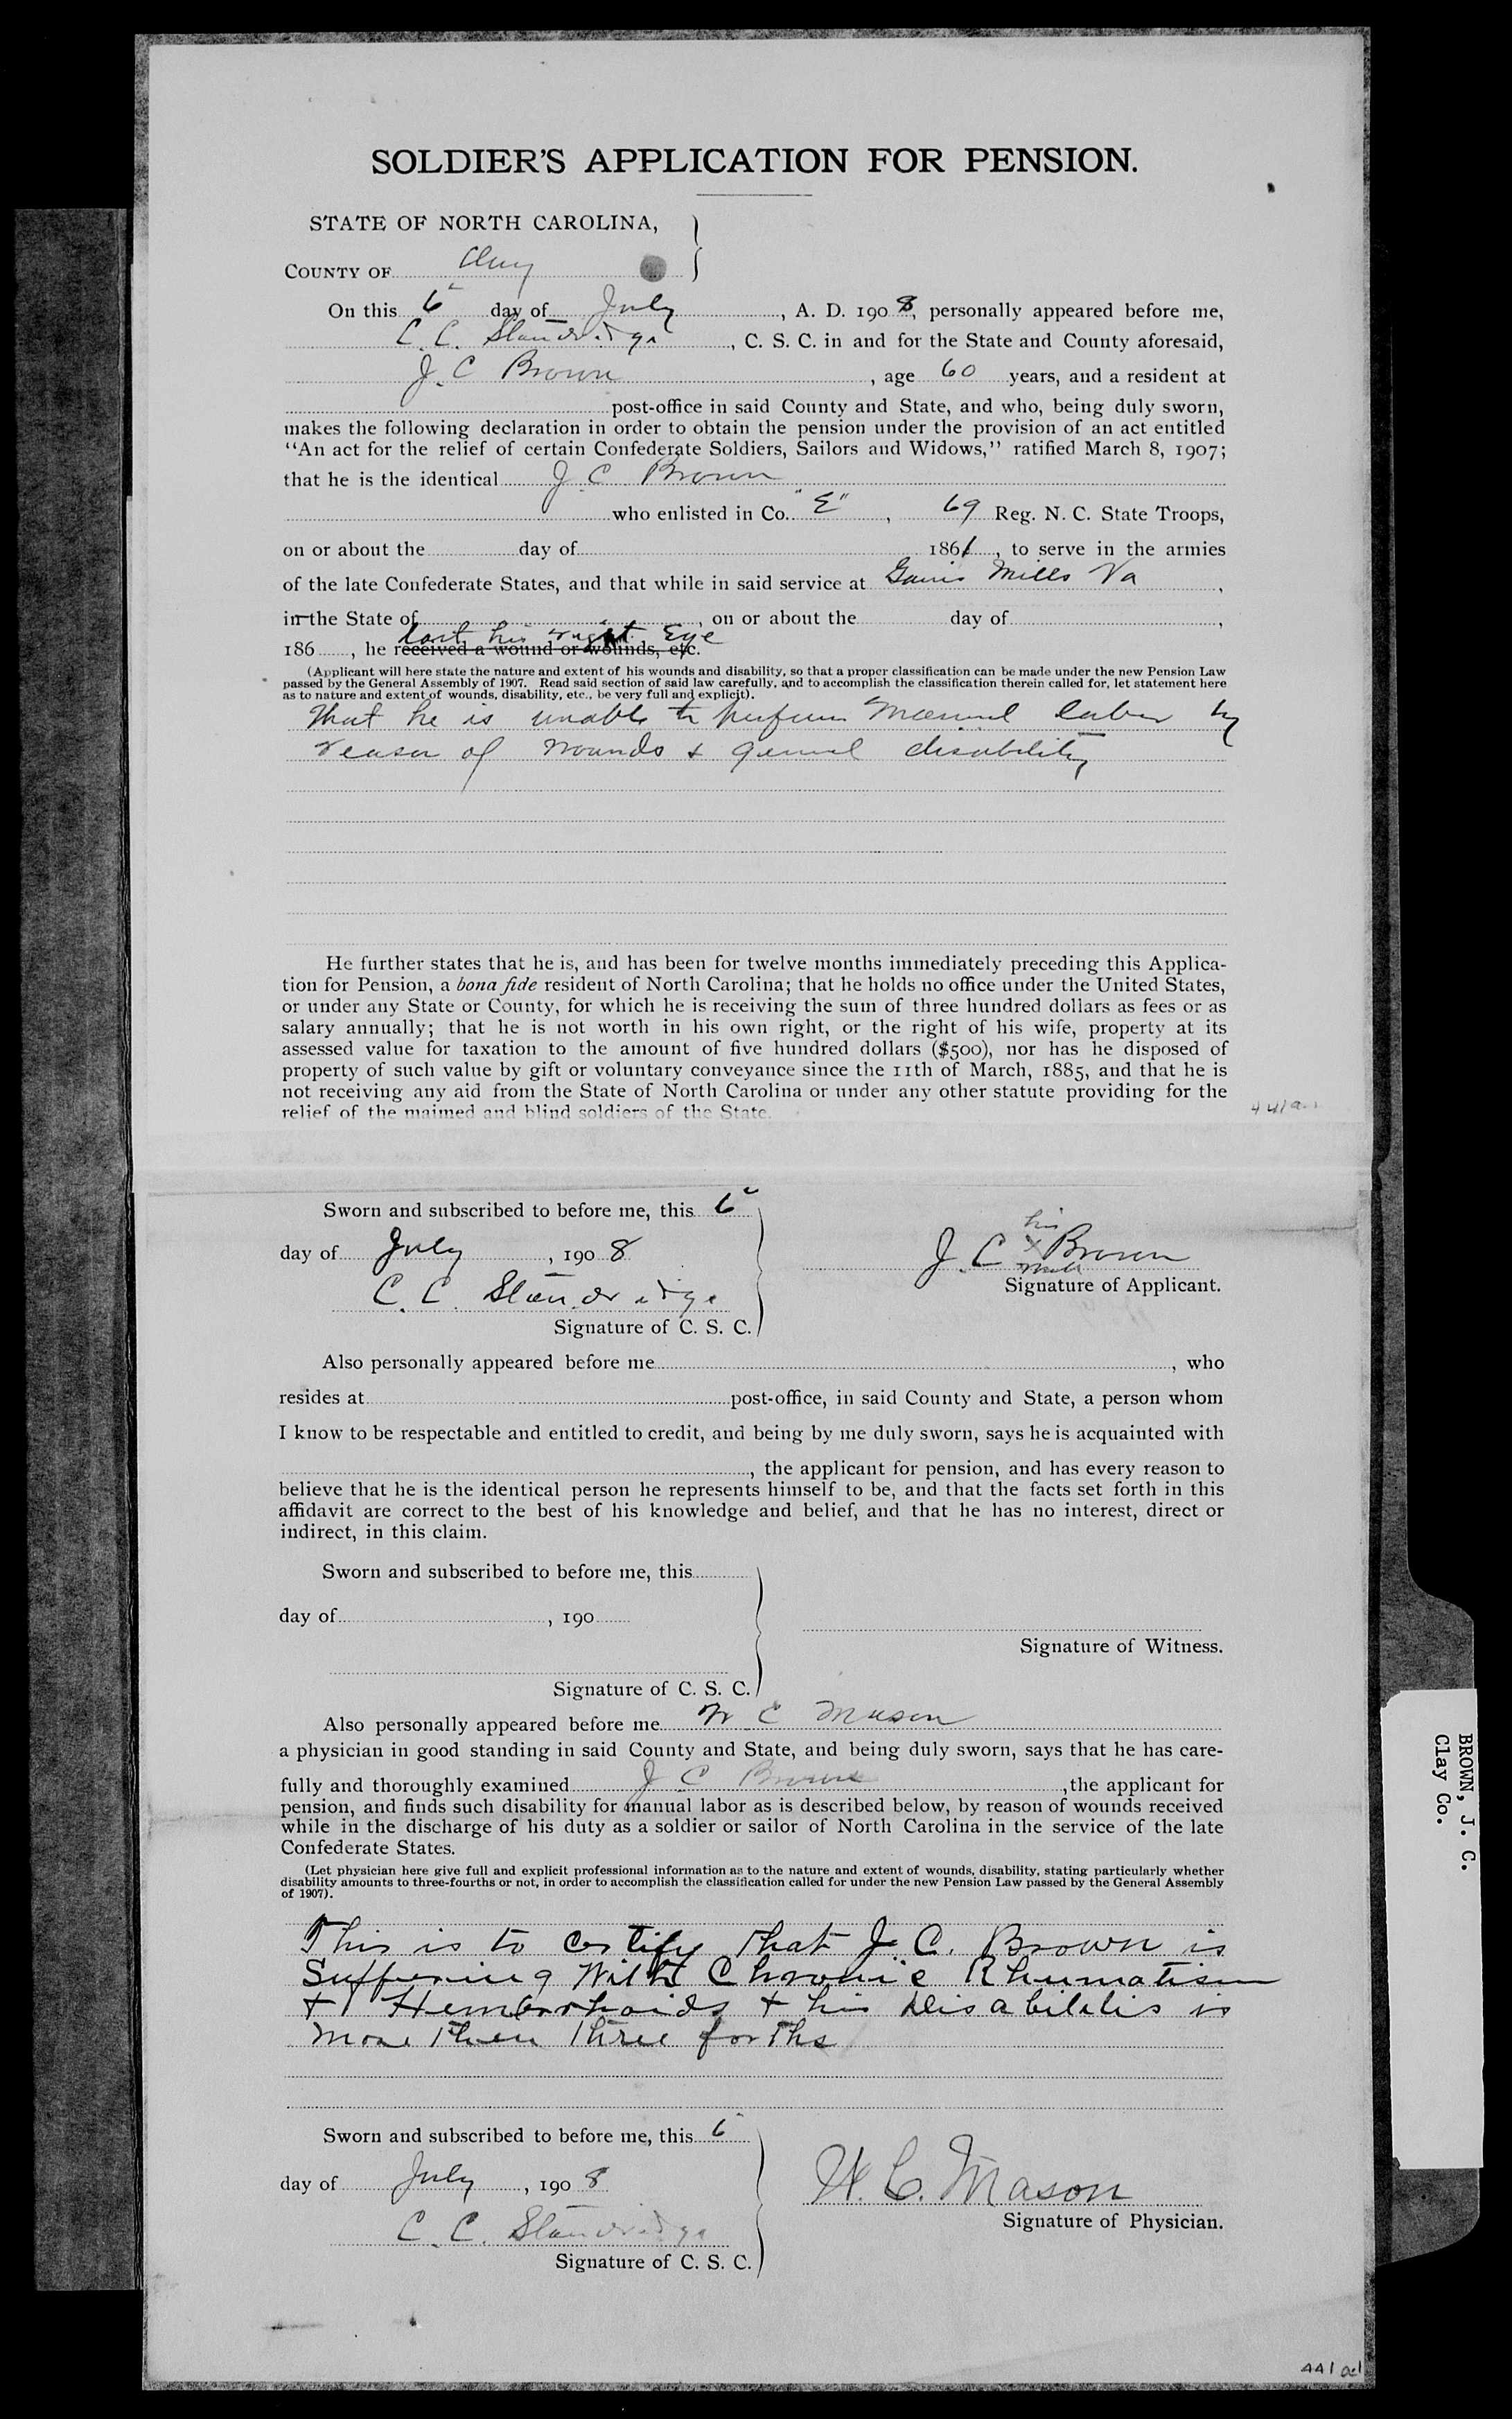 SOLDIER'S APPLICATION FOR PENSION.
STATE OF NORTH CAROLINA,
COUNTY OF Clay
On this 6 day of July, A. D. 1908, personally appeared before me,
C. C. Standridge, C. S. C. in and for the State and County aforesaid,
J. C Brown, age 60 years, and a resident at
post-office in said County and State, and who, being duly sworn,
makes the following declaration in order to obtain the pension under the provision of an act entitled
"An act for the relief of certain Confederate Soldiers, Sailors and Widows," ratified March 8, 1907;
that he is the identical J. C. Brown
who enlisted in Co. "E", 69 Reg. N. C. State Troops,
on or about the day of 1861, to serve in the armies
of the late Confederate States, and that while in said service at Gains Mills Va,
in the State of, on or about the day of,
lost his right Eye
186, he received a wound or wounds, etc.
(Applicant will here state the nature and extent of his wounds and disability, so that a proper classification can be made under the new Pension Law
passed by the General Assembly of 1907. Read said section of said law carefully, and to accomplish the classification therein called for, let statement here
as to nature and extent of wounds, disability, etc., be very full and explicit).
That he is unable to perfrom manual labor by
reason of wounds & general disability
He further states that he is, and has been for twelve months immediately preceding this Applica-
tion for Pension, a bona fide resident of North Carolina; that he holds no office under the United States,
or under any State or County, for which he is receiving the sum of three hundred dollars as fees or as
salary annually; that he is not worth in his own right, or the right of his wife, property at its
assessed value for taxation to the amount of five hundred dollars ($500), nor has he disposed of
property of such value by gift or voluntary conveyance since the 11th of March, 1885, and that he is
not receiving any aid from the State of North Carolina or under any other statute providing for the
relief of the maimed and blind soldiers of the State.
Sworn and subscribed to before me, this 6
day of July, 1908
C. C. Standridge
Signature of C. S. C.
his
J. C x Brown
mark
Signature of Applicant.
Also personally appeared before me, who
resides at post-office, in said County and State, a person whom
I know to be respectable and entitled to credit, and being by me duly sworn, says he is acquainted with
, the applicant for pension, and has every reason to
believe that he is the identical person he represents himself to be, and that the facts set forth in this
affidavit are correct to the best of his knowledge and belief, and that he has no interest, direct or
indirect, in this claim.
Sworn and subscribed to before me, this
day of, 190
Signature of C. S. C.
Signature of Witness.
Also personally appeared before me W C Mason
a physician in good standing in said County and State, and being duly sworn, says that he has care-
fully and thoroughly examined J C Brown, the applicant for
pension, and finds such disability for manual labor as is described below, by reason of wounds received
while in the discharge of his duty as a soldier or sailor of North Carolina in the service of the late
Confederate States.
(Let physician here give full and explicit professional information as to the nature and extent of wounds, disability, stating particularly whether
disability amounts to three-fourths or not, in order to accomplish the classification called for under the new Pension Law passed by the General Assembly
of 1907).
This is to certify that J. C. Brown is
Suffering With Chronic Rhumatism
+ Hemorrhoids + his Disabilitis is
more then three forths
Sworn and subscribed to before me, this 6
day of July, 1908
C. C. Standridge
Signature of C. S. C.
W. C. Mason
Signature of Physician.
BROWN, J. C.
Clay Co.